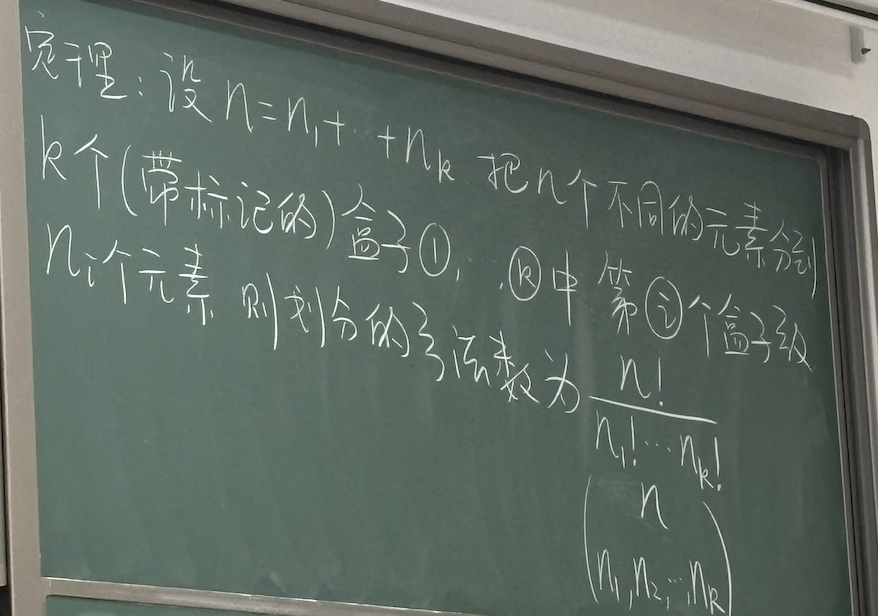 定理：设 n=n₁+…+nₖ 把n个不同的元素分到
k个(带标记的)盒子①,…,ⓚ中 第ⓘ个盒子放
nᵢ个元素 则划分的方法数为 n!/(n₁!…nₖ!)
(n
n₁,n₂,…,nₖ)